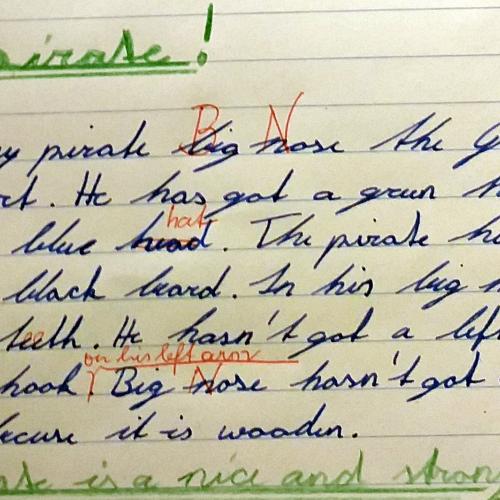 pirate!
my pirate Big Nose the
. He has got a green
blue hat. The pirate
black beard. In his big
teeth. He hasn't got a left
on his left arm
hook Big Nose hasn't got
becuse it is wooden.
is a nice and strong